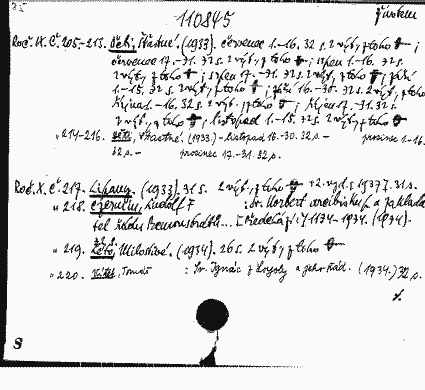 25
110845
Životem
Roč. IX. Č. 205.-213. Děti, Šťastné. (1933). červenec 1.-16. 32 s. 2 výt., z toho ;
červenec 17.-31. 32 s. 2 výt., z toho ; srpen 1.-16. 32 s.
2 výt., z toho ; srpen 17.-31. 32 s. 2 výt., z toho ; září
1.-15. 32 s. 2 výt., z toho ; září 16.-30. 32 s. 2 výt., z toho
října 1.-16. 32 s. 2 výt., z toho ; říjen 17.-31. 32 s.
2 výt., z toho , listopad 1.-15. 32 s. 2 výt., z toho
" 214-216. Děti, Šťastné. (1933.) - listopad 16.-30. 32 s. - prosinec 1.-16.
32 s. - prosinec 17.-31. 32 s.
Roč. X. Č. 217. (1933). 31 s. 2 výt., z toho +2. vyd. 1937. 31 s.
" 218. Rudolf F : Sv. Norbert arcibiskup a zaklada
tel řádu Premonstrátů... 1134-1934. (1934).
" 219. Léto, Milostivé. (1934). 26 s. 2 výt., z toho
" 220. Tomáš : Sv. Ignác z Loyoly a jeho řád. (1934.) 32 s.
S